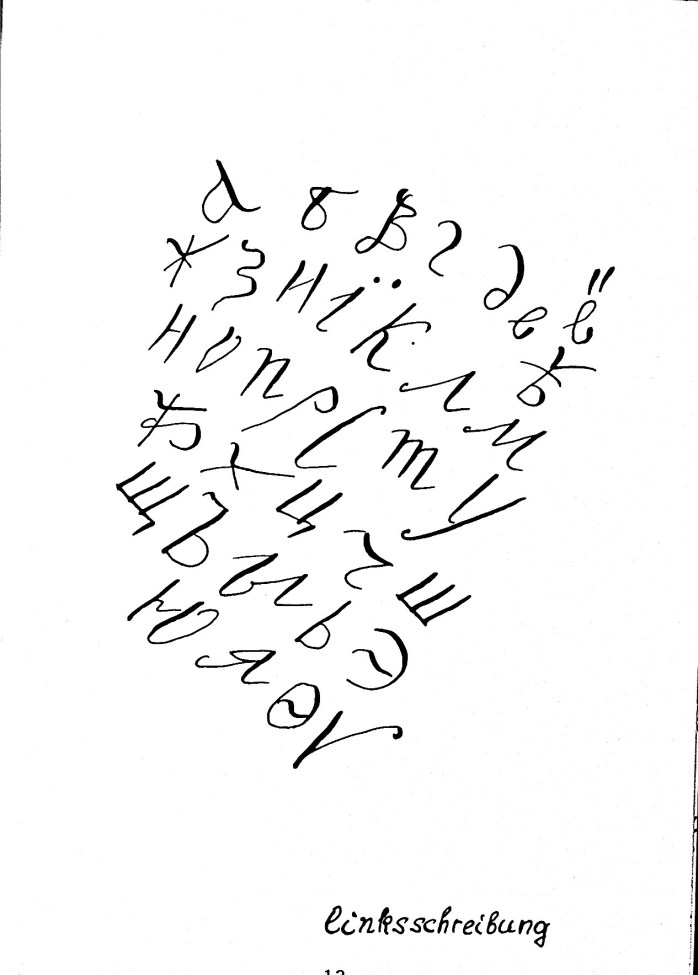 а б в г д е ё ѣ
ж з и ї к л м
н о п р с т у
ф х ц ч ш
щ ъ ы ь э
ю я ѳ ѵ
linksschreibung
12